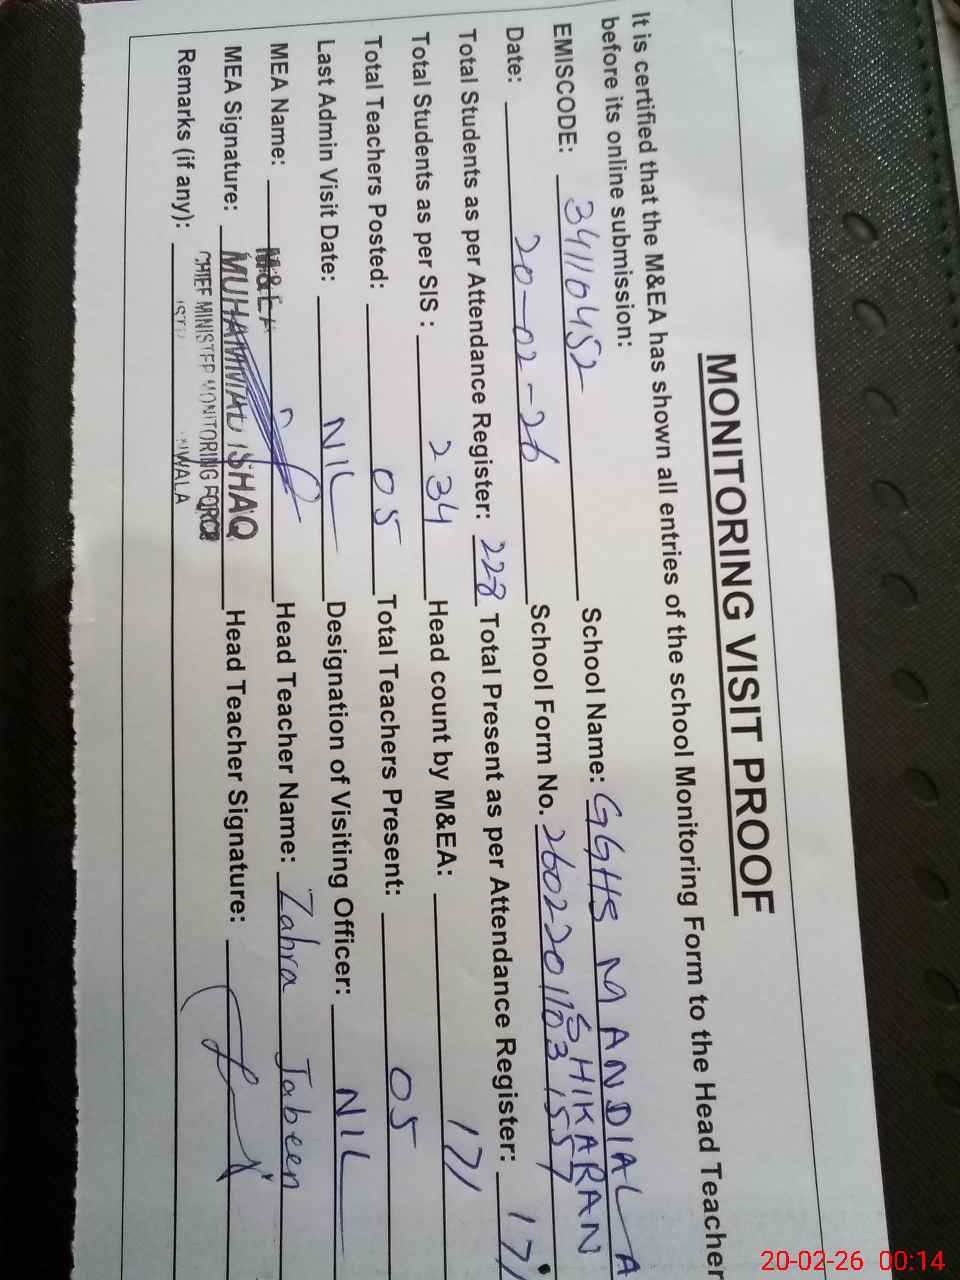 MONITORING VISIT PROOF
It is certified that the M&EA has shown all entries of the school Monitoring Form to the Head Teacher
before its online submission:
EMISCODE: 34110452 School Name: GGHS MANDIALA
SHIKARAN
Date: 20-02-26 School Form No. 26022011031557
Total Students as per Attendance Register: 228 Total Present as per Attendance Register: 171
Total Students as per SIS : 234 Head count by M&EA: 171
Total Teachers Posted: 05 Total Teachers Present: 05
Last Admin Visit Date: NIL Designation of Visiting Officer: NIL
MEA Name: M&EA Head Teacher Name: Zahra Jabeen
MEA Signature: MUHAMMAD ISHAQ Head Teacher Signature:
CHIEF MINISTER MONITORING FORCE
Remarks (if any):
20-02-26 00:14